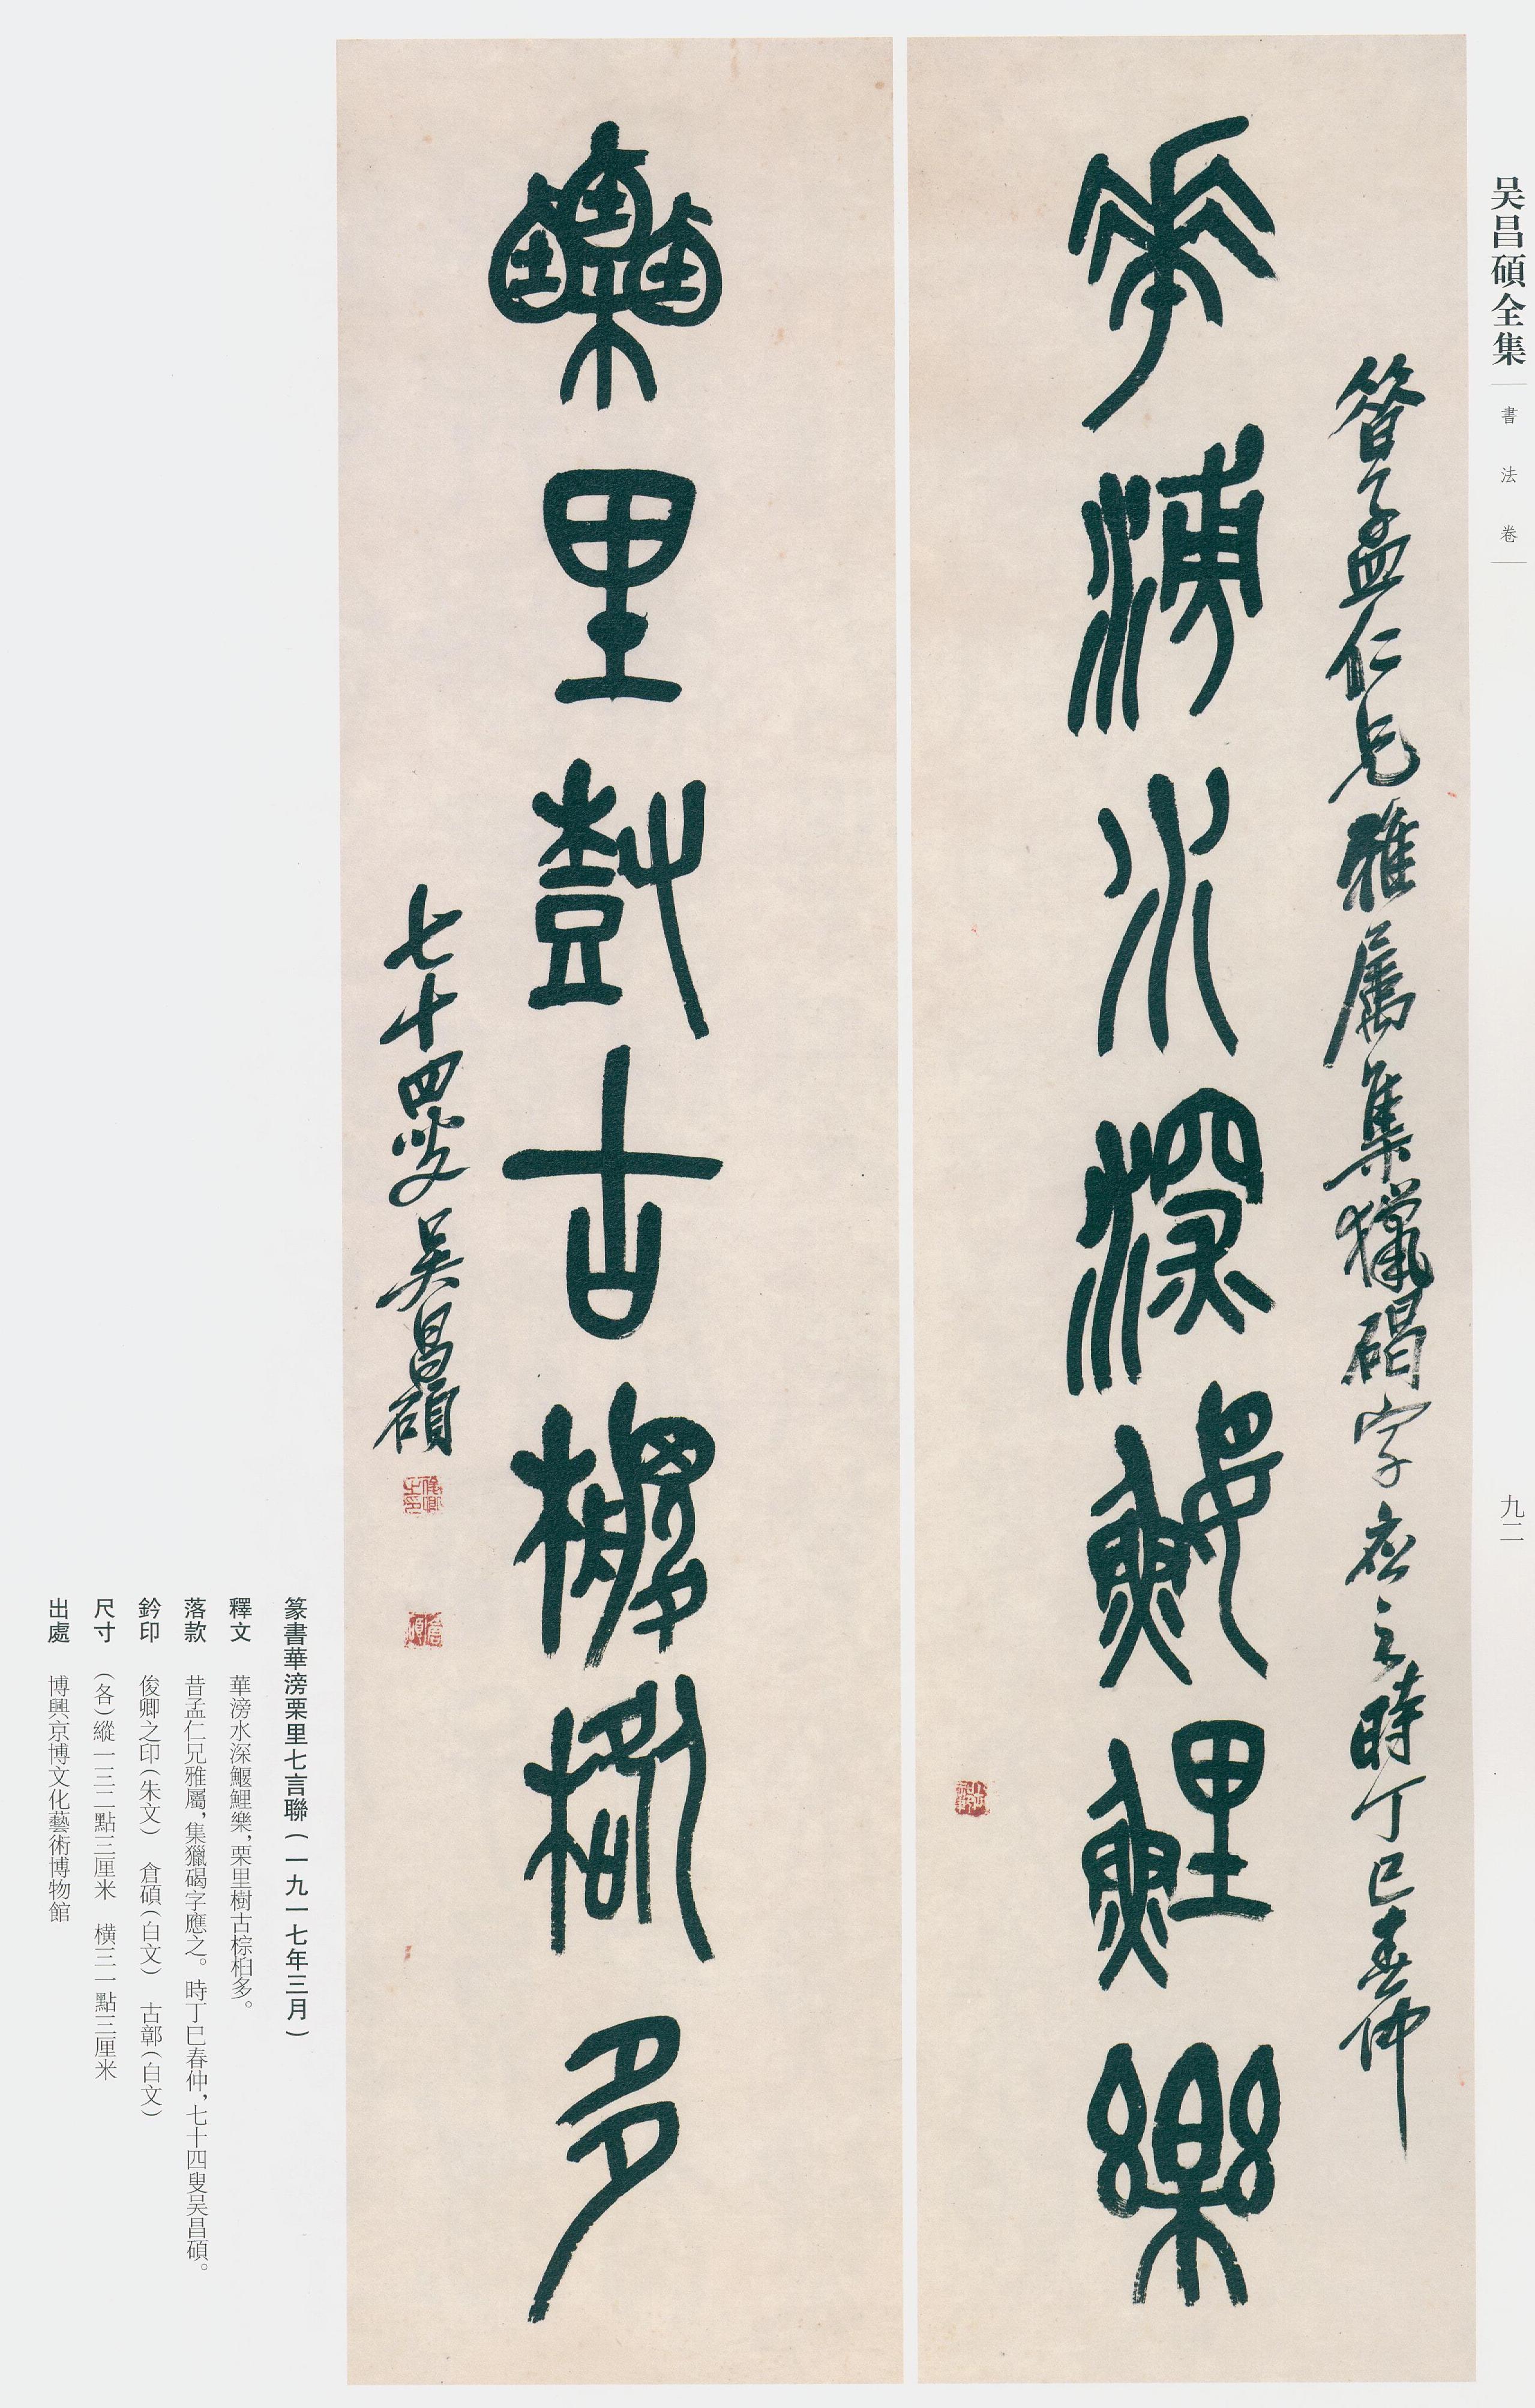 吴昌碩全集
書法卷
九二
昔孟仁兄雅屬集獵碣字應之時丁巳春仲
華滂水深鰋鯉樂
古鄣
栗里樹古棕桕多
七十四叟吴昌碩
俊卿之印
倉碩
篆書華滂栗里七言聯(一九一七年三月)
釋文 華滂水深鰋鯉樂,栗里樹古棕桕多。
落款 昔孟仁兄雅屬,集獵碣字應之。時丁巳春仲,七十四叟吴昌碩。
鈐印 俊卿之印(朱文) 倉碩(白文) 古鄣(白文)
尺寸 (各)縱一三二點三厘米 横三一點三厘米
出處 博興京博文化藝術博物館